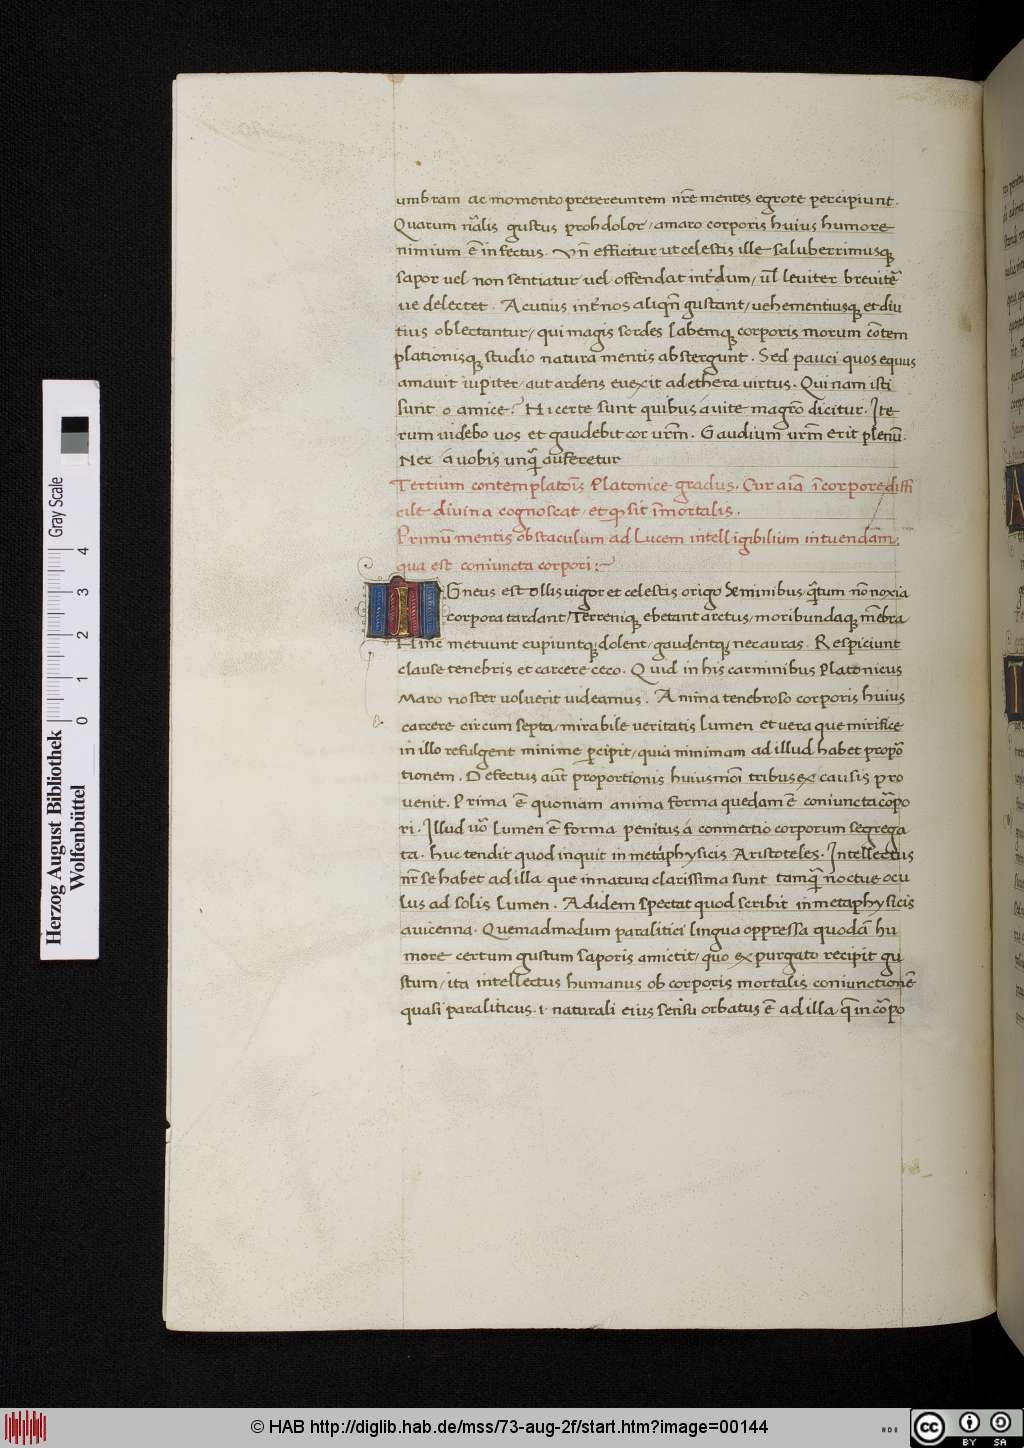 umbram ac momento pretereuntem nr̄e mentes egrote percipiunt.
Quarum nãlis gustus proh dolor / amaro corporis huius humore
nimium ē infectus. Vn̄ efficitur ut celestis ille saluberrimusq;
sapor uel non sentiatur uel offendat int̄dum / ul̄ leuiter breuitē
ue delectet. Acutius int̄ nos aliqn̄ gustant / uehementiusq; et diu
tius oblectantur / qui magis sordes labemq; corporis morum cōtem
plationisq; studio natura mentis abstergunt. Sed pauci quos equus
amauit iupiter / aut ardens euexit ad ethera uirtus. Qui nam isti
sunt o amice? Hi certe sunt quibus á uite magrō dicitur. Ite
rum uidebo uos et gaudebit cor ur̄m. Gaudium ur̄m erit plenū.
Nec á uobis unq̄ auferetur
Tertium contemplatoīs Platonice gradus. Cur aīa ī corpore diffi
cile diuina cognoscat / et q sit īmortalis.
Primū mentis obstaculum ad Lucem intelligibilium intuendam:
qua est coniuncta corpori:~
IGneus est ollis uigor et celestis origo Seminibus / q̄tum nō noxia
corpora tardant / Terreniq; ebetant artus / moribundaq; mēbra
Hinc metuunt cupiuntq; dolent / gaudentq; nec auras Respiciunt
clause tenebris et carcere ceco. Quid in his carminibus Platonicus
Maro noster uoluerit uideamus. Anima tenebroso corporis huius
carcere circumsepta / mirabile ueritatis lumen et uera que mirifice
in illo refulgent minime p̄cipit / quia minimam ad illud habet propor̄
tionem. Defectus aūt proportionis huiusmōi tribus ex causis pro
uenit. Prima ē quoniam anima forma quedam ē coniuncta cōrpo
ri. Illud uō lumen ē forma penitus á conmertio corporum segrega
ta. huc tendit quod inquit in metaphysicis Aristoteles. Intellectus
nr̄ se habet ad illa que in natura clarissima sunt tamq̄ noctue ocu
lus ad solis lumen. Ad idem spectat quod scribit in metaphysicis
auicenna. Quemadmodum paralitici lingua oppressa quodā hu
more certum gustum saporis amictit / quo expurgato recipit gu
stum / ita intellectus humanus ob corporis mortalis coniunctionē
quasi paraliticus .i. naturali eius sensu orbatus ē ad illa / q̄ incōrpo
Herzog August Bibliothek
Wolfenbüttel
0 1 2 3 4
Gray Scale
© HAB http://diglib.hab.de/mss/73-aug-2f/start.htm?image=00144
cc BY SA